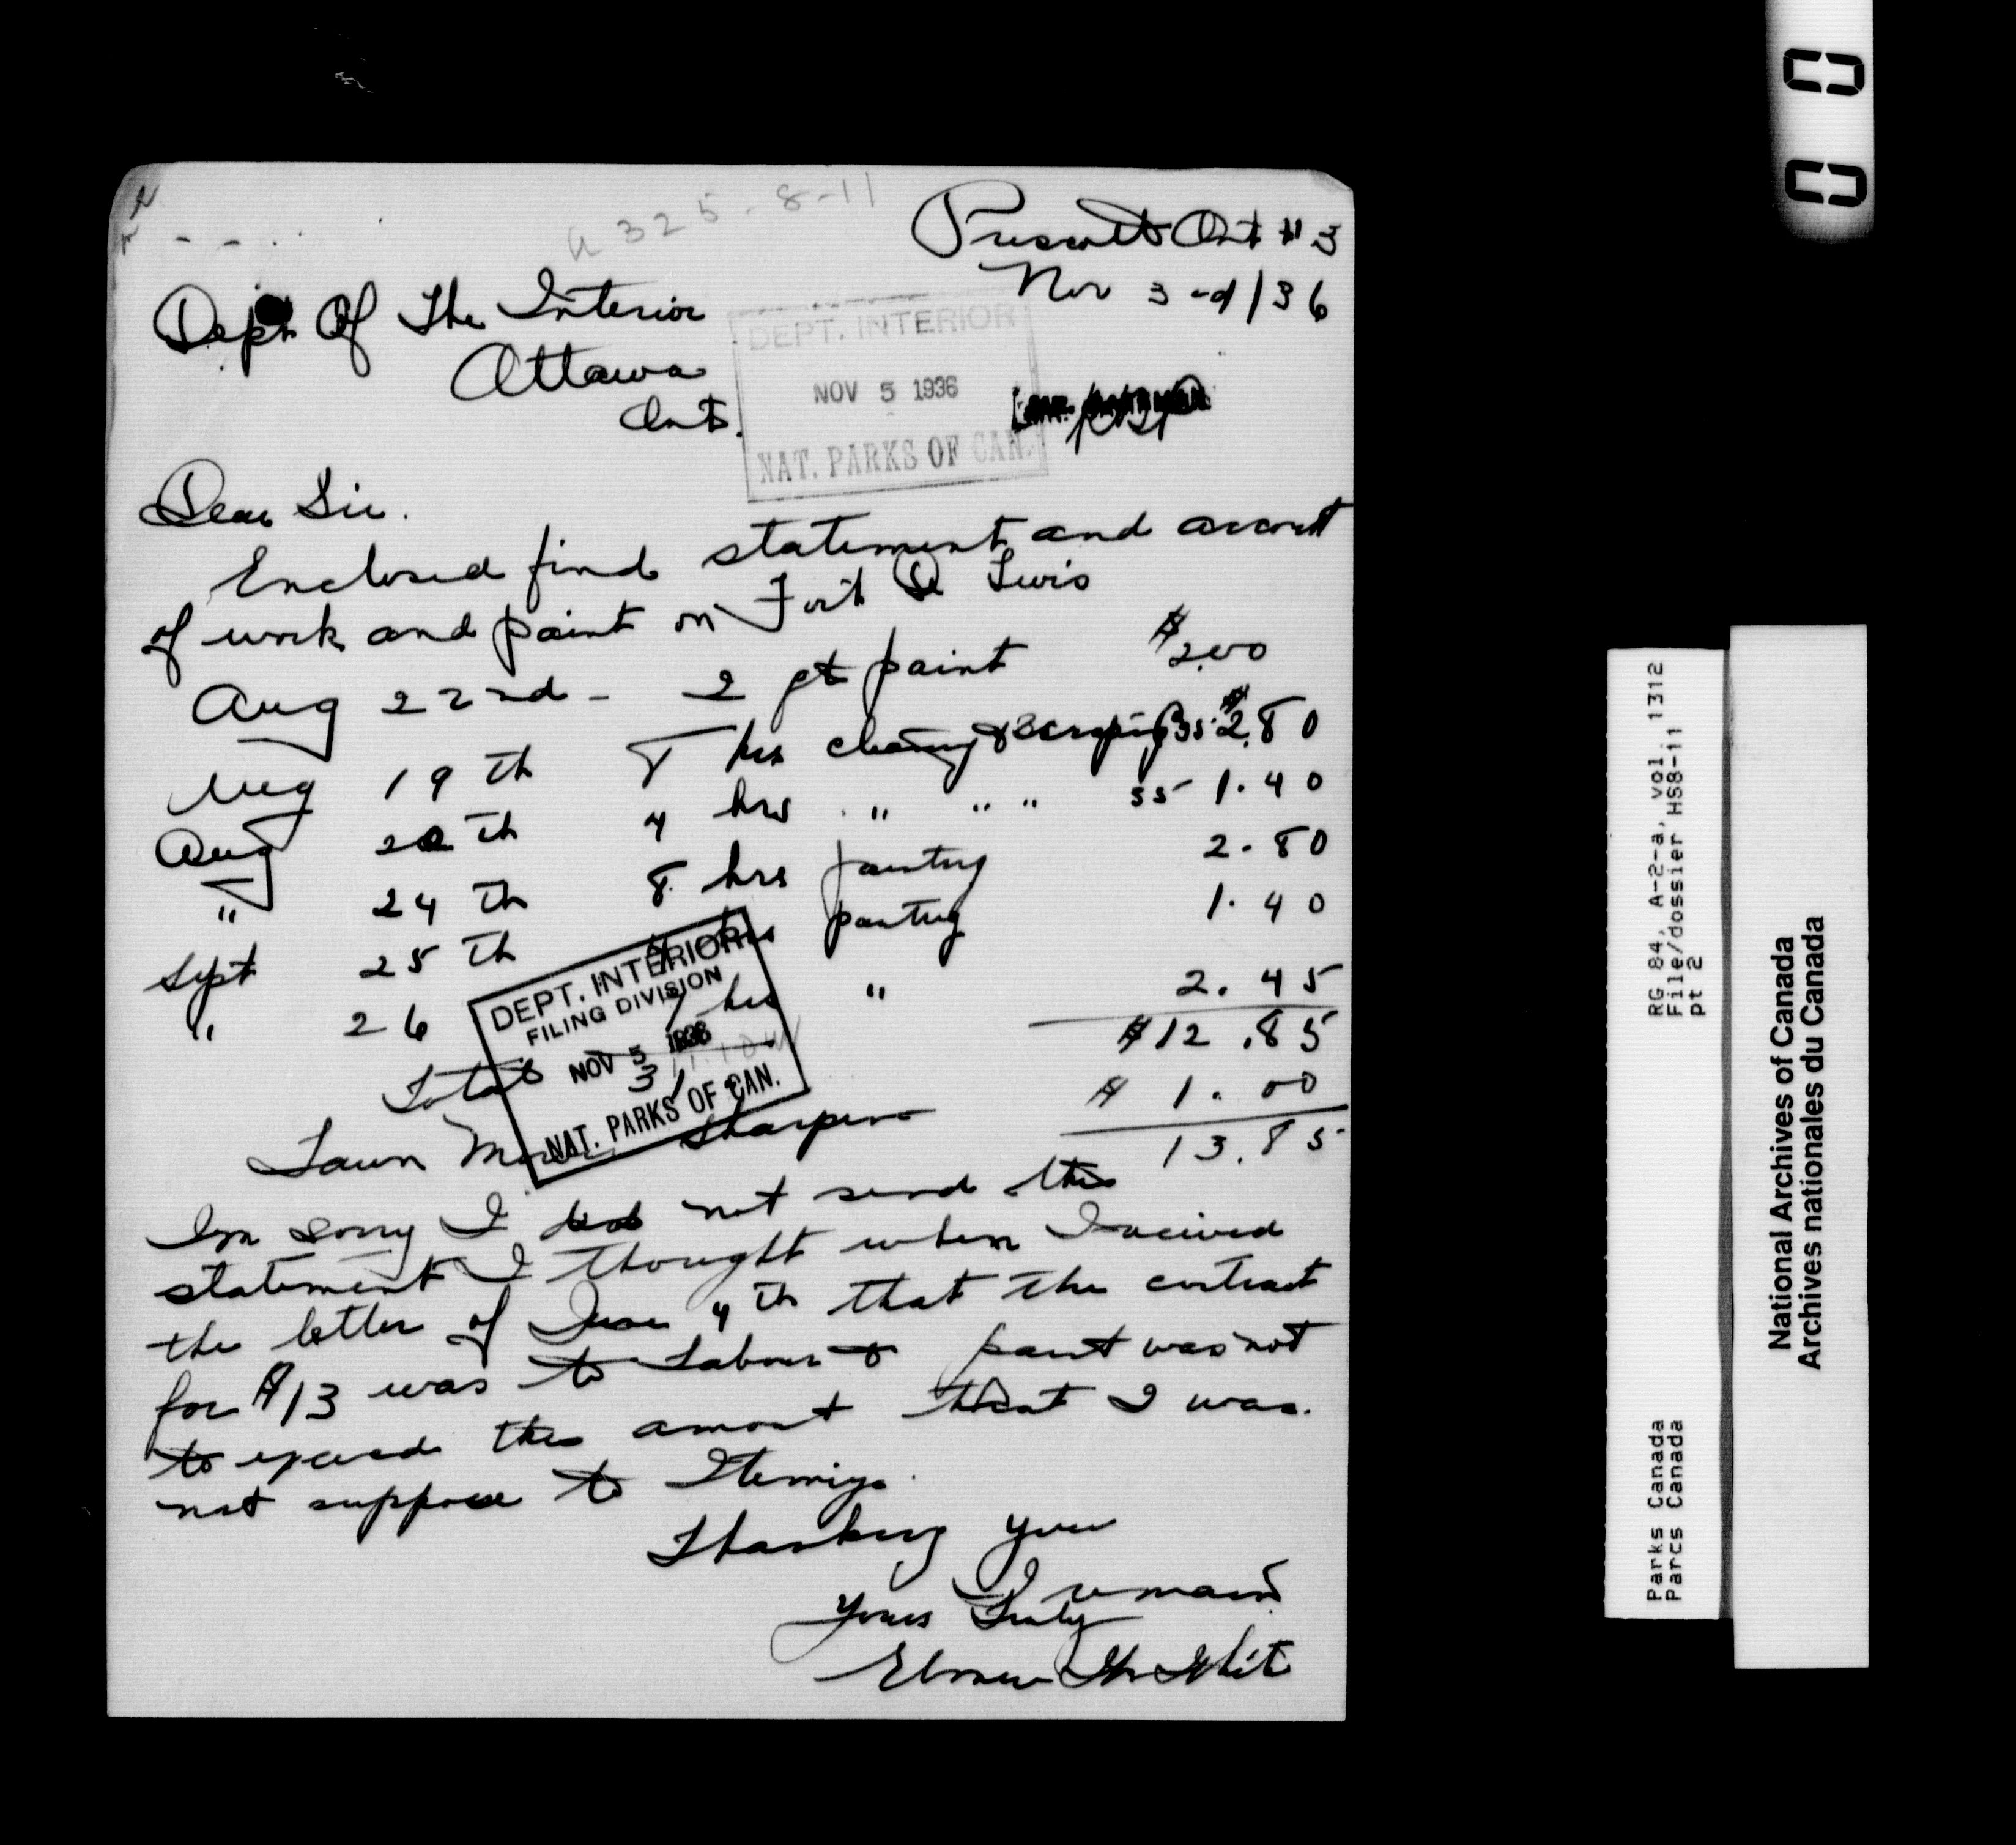 a 325-8-11
Prescott Ont #3
Nov 3rd/36
Dept Of The Interior
Ottawa
Ont.
DEPT. INTERIOR
NOV 5 1936
NAT. PARKS OF CAN.
Dear Sir.
Enclosed find statement and account
of work and paint on Fort De Levis
Aug 22nd - 2 gt paint $2.00
Aug 19th 8 hrs cleaning & Scraping 35 $2.80
Aug 20th 4 hrs " " " 35 1.40
" 24th 8 hrs painting 2.80
Sept 25th 4 hrs panting 1.40
" 26 7 hrs " 2.45
Total 31 $12.85
DEPT. INTERIOR
FILING DIVISION
NOV 5 1936
NAT. PARKS OF CAN.
Lawn Mower Sharpen $1.00
13.85
Im sorry I did not send this
statement I thought when I recived
the letter of June 4th that the contract
for $13 was to Labour & paint was not
to exceed this amont that I was
not suppose to Itemize.
Thanking you
I remain
Yours Truly
Elmer
RG 84, A-2-a, vol. 1312
File/dossier HS8-11
pt 2
Parks Canada
Parcs Canada
National Archives of Canada
Archives nationales du Canada